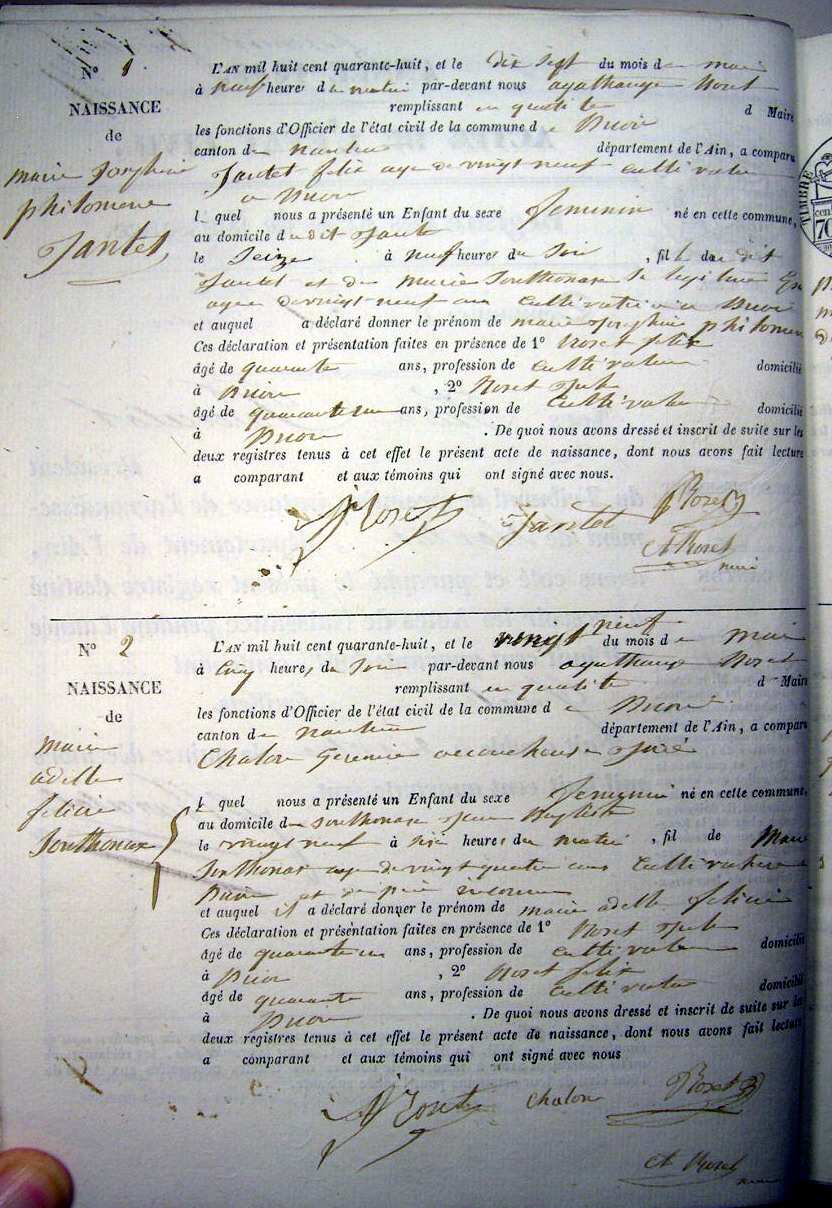 N° 1
NAISSANCE
de
marie Josephine
philomene
Jantet
L'AN mil huit cent quarante-huit, et le dix sept du mois de mai
à neuf heures du matin par-devant nous agathange Roset
remplissant en qualité d Maire
les fonctions d'Officier de l'état civil de la commune de Brion
canton de nantua département de l'Ain, a comparu
Jantet felix age de vingt neuf cultivateur
a Brion
lequel nous a présenté un Enfant du sexe feminin né en cette commune,
au domicile dudit Jantet
le Seize à neuf heures du Soir, fille dudit
Jantet et de Marie Sonthonax legitime
agee de vingt neuf ans cultivatrice a Brion
et auquel a déclaré donner le prénom de marie Josephine philomene
Ces déclaration et présentation faites en présence de 1° Roset felix
âgé de quarante ans, profession de cultivateur domicilié
à Brion, 2° Roset
âgé de quarante un ans, profession de cultivateur domicilié
à Brion. De quoi nous avons dressé et inscrit de suite sur les
deux registres tenus à cet effet le présent acte de naissance, dont nous avons fait lecture
a comparant et aux témoins qui ont signé avec nous.
Roset Jantet Roset
At Roset
maire
N° 2
NAISSANCE
de
marie
adelle
felicie
Sonthonax
L'AN mil huit cent quarante-huit, et le vingt neuf du mois de mai
à cinq heures du Soir par-devant nous agathange Roset
remplissant en qualité d Maire
les fonctions d'Officier de l'état civil de la commune de Brion
canton de nantua département de l'Ain, a comparu
Chalon accoucheuse
lequel nous a présenté un Enfant du sexe feminin né en cette commune,
au domicile de Sonthonax Jean Baptiste
le vingt neuf à six heures du matin, fil de Marie
Sonthonax age de vingt quatre ans cultivatrice a
Brion et de pere inconnu
et auquel il a déclaré donner le prénom de marie adelle felicie
Ces déclaration et présentation faites en présence de 1° Roset
âgé de quarante un ans, profession de cultivateur domicilié
à Brion, 2° Roset felix
âgé de quarante ans, profession de cultivateur domicilié
à Brion. De quoi nous avons dressé et inscrit de suite sur les
deux registres tenus à cet effet le présent acte de naissance, dont nous avons fait lecture
a comparant et aux témoins qui ont signé avec nous
Roset chalon Roset
At Roset
maire
TIMBRE
70